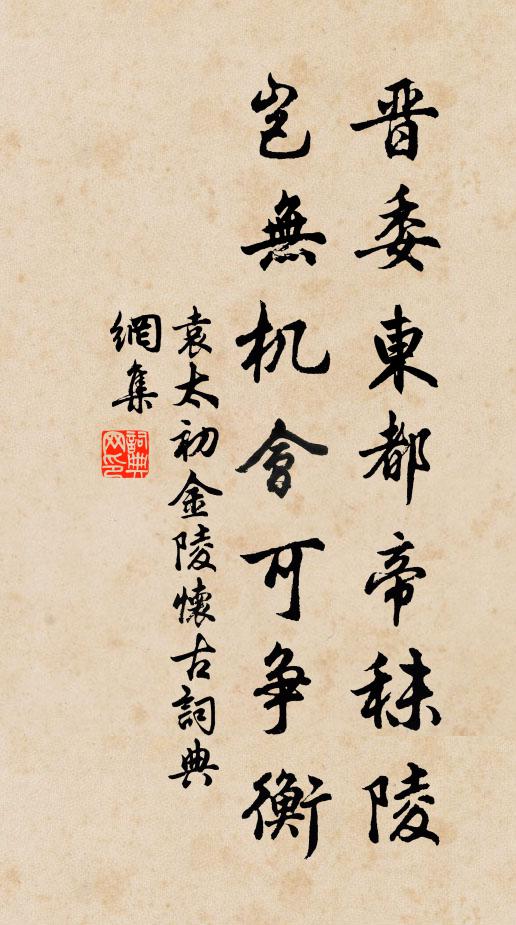 晋委東都帝秣陵
岂無机會可争衡
袁太初金陵懷古詞典
網集
詞典网印